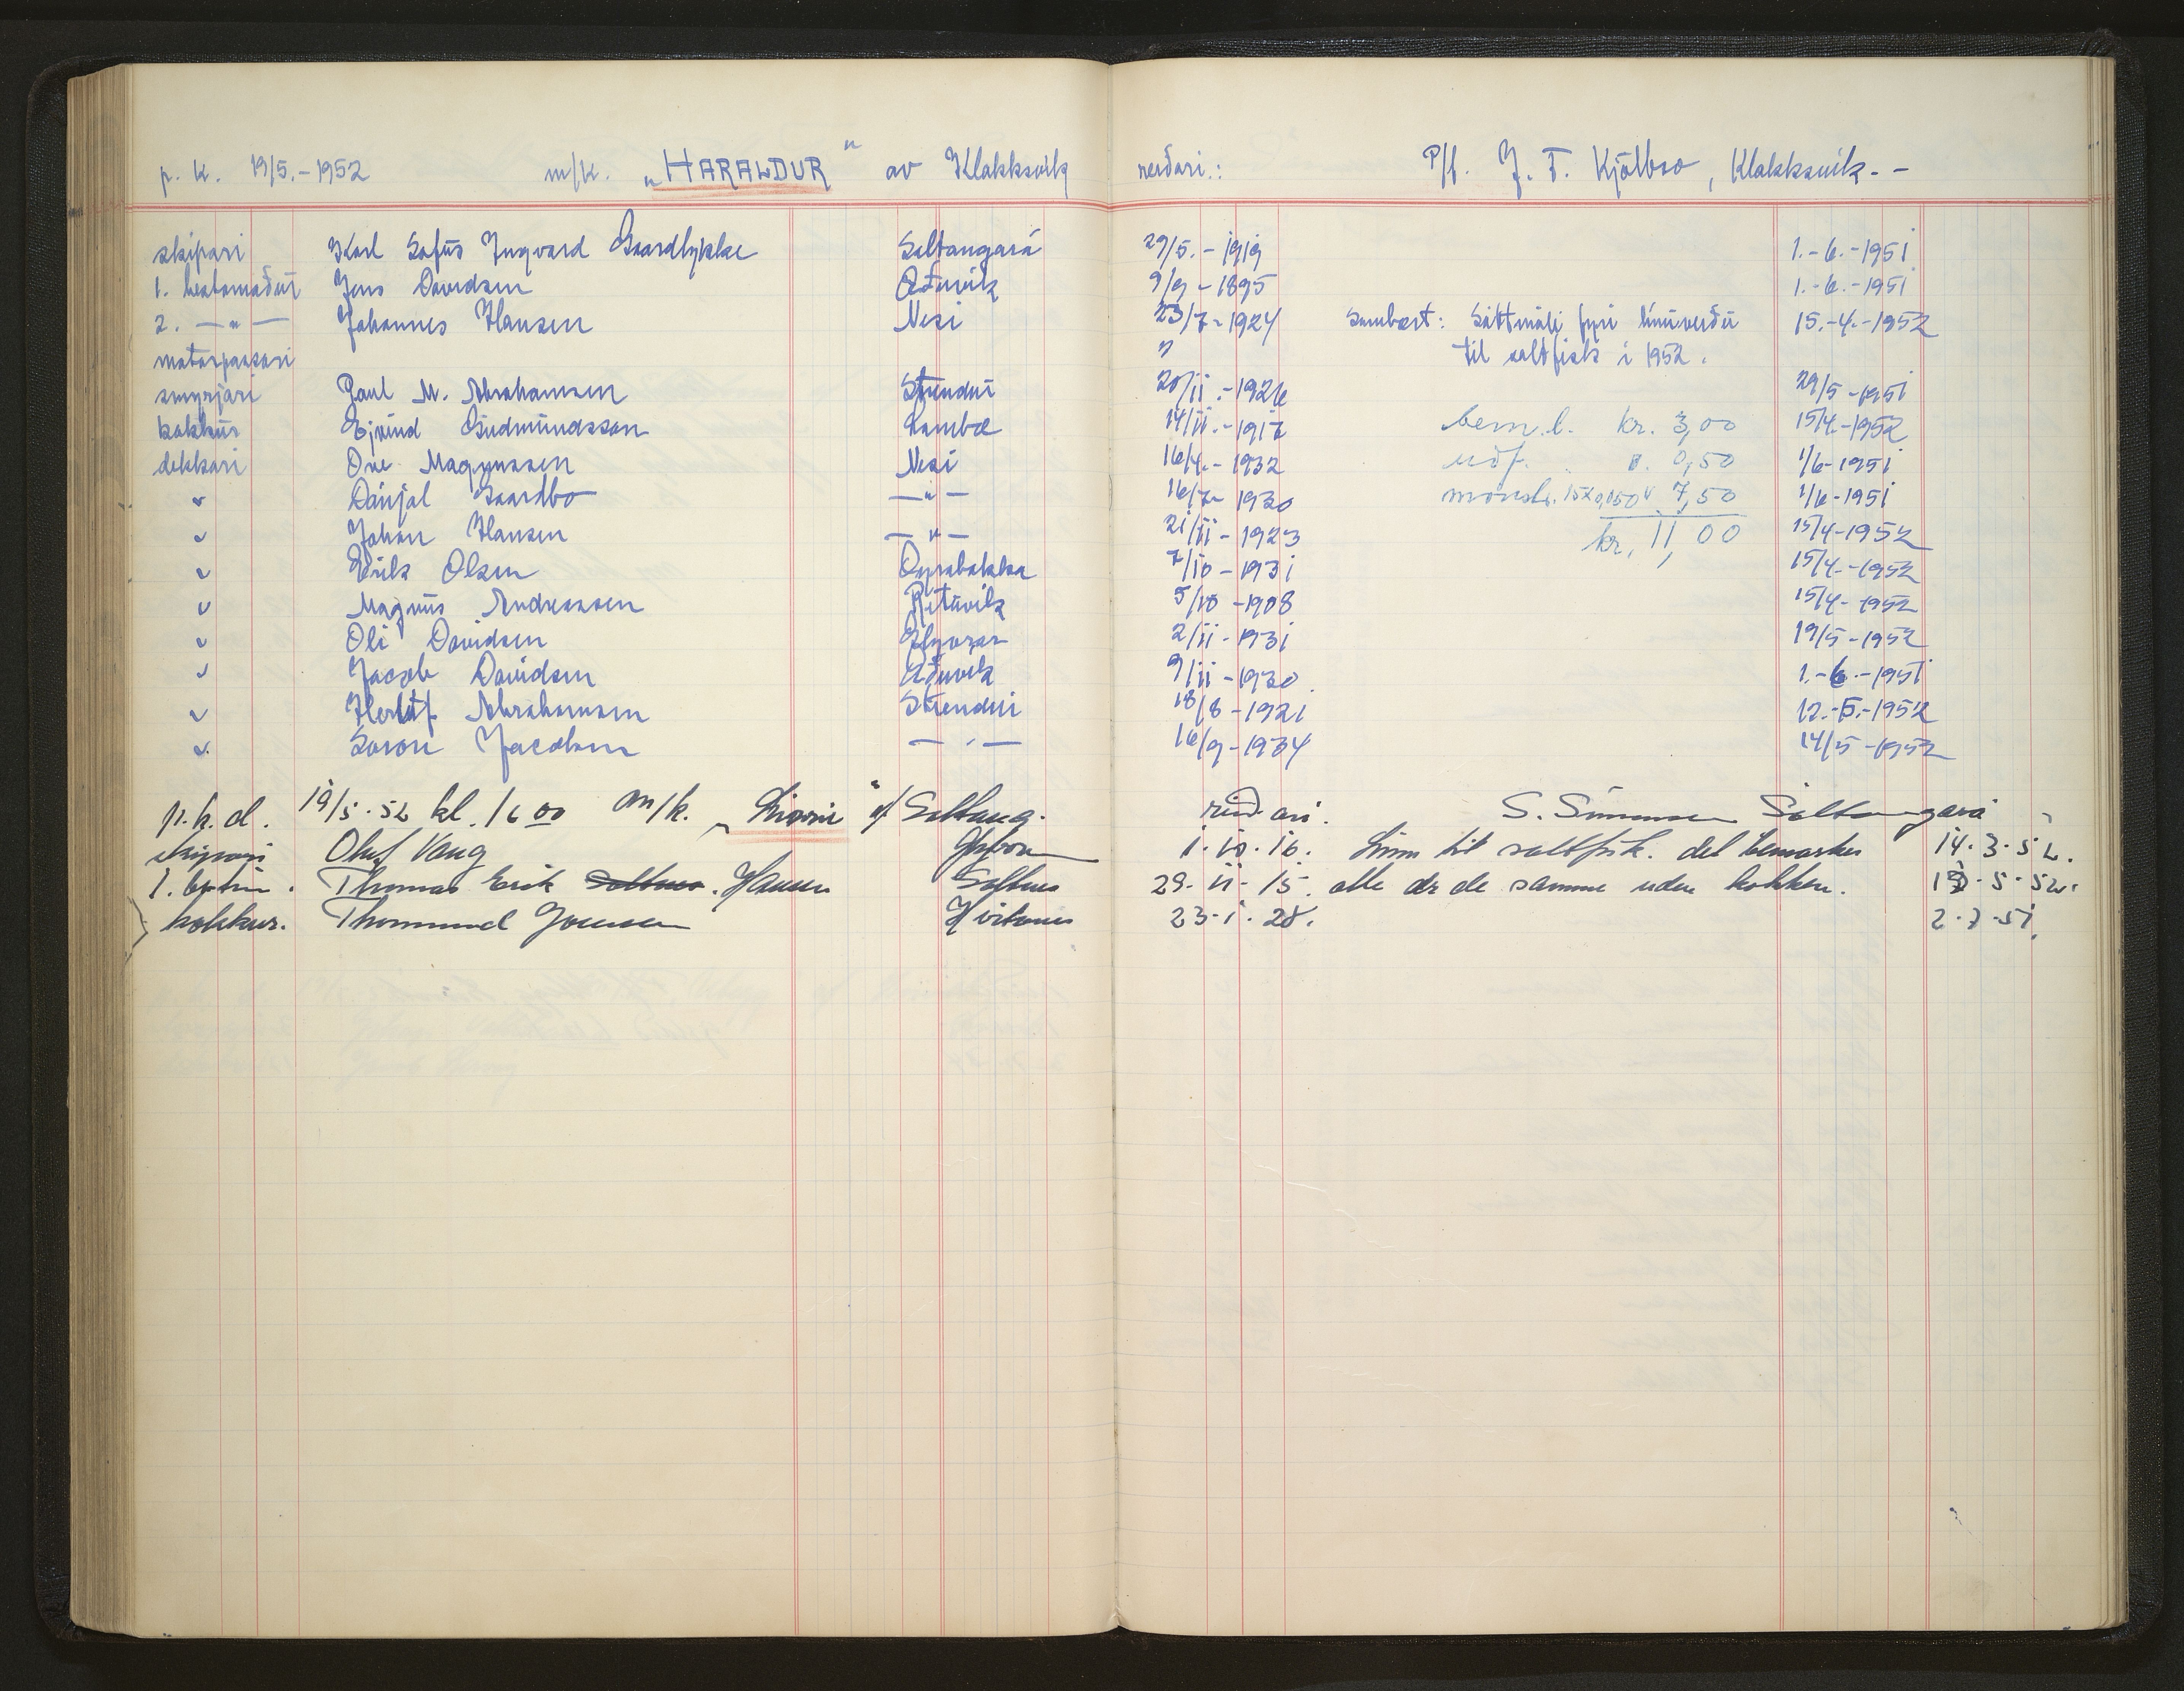 p. k. 19/5.-1952 m/k. „HARALDUR" av Klakksvík reiðari.: P/f. J. F. Kjölbro, Klakksvík. -
skipari Karl Sofus Ingvard Gaardlykke Saltangará 29/5.-1919 1.-6.-1951
1. bestamaður Jens Davidsen Æðuvík 9/9-1895 1.-6.-1951
2. —"— Johannes Hansen Nesi 23/7-1924 sambært: Sáttmáli fyri línuveiðu 15.-4.-1952
motorpassari " til saltfisk í 1952.
smyrjari Paul M. Abrahamsen Strendur 20/11.-1926 29/5-1951
kokkur Ejvind Gudmundsson Lambæ 14/11.-1917 bem. l. kr. 3,00 15/4-1952
dekkari One Magnussen Nesi 16/4.-1932 udf. 0,50 1/6-1951
" Danjal Gaardbo —"— 16/7-1930 mønstr. 15x0,50 " 7,50 1/6-1951
" Johan Hansen —"— 21/11-1923 kr. 11,00 15/4-1952
" Erik Olsen Oyrabakka 7/10-1931 15/4-1952
" Magnus Andreasen Rituvík 5/10-1908 15/4-1952
" Oli Davidsen Glyvrar 2/11-1931 19/5-1952
" Jacob Davidsen Æðuvík 9/11-1930 1.-6.-1951
" Herluf Abrahamsen Strendur 18/8-1921 12.-5.-1952
" Soren Jacobsen —"— 16/9-1934 14/5-1952
p.k.d. 19/5.52 kl. 16 00 m/k. „ " af Saltang. reiðari. S. Simonsen Saltangará
skipari Oluf Vang Glyvrar 1.10.16. Línu til saltfisk. det bemærkes 14.3.52.
1. Thomas Erik Hansen Saltnes 29.11.15. alle er de samme uden kokken. 5.52.
kokkur. Thommund Joensen Hvítanes 23.1.28. 2.7.51.